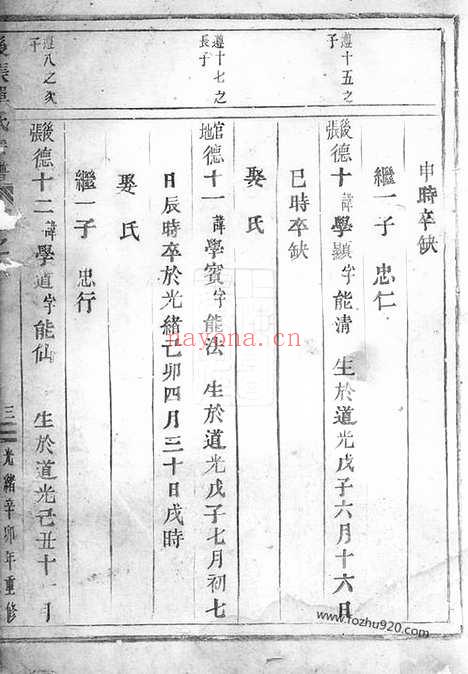 申時卒缺
繼一子 忠仁
遵十五之
子
後張德十諱學顯字能清 生於道光戊子六月十六日
巳時卒缺
娶氏
遵十七之
長子
官地德十一諱學賓字能法 生於道光戊子七月初七
日辰時卒於光緒己卯四月三十日戌時
娶氏
繼一子 忠行
遵八之次
子
後張德十二諱學道字能仙 生於道光己丑十一月
三 光緒辛卯年重修
nayona.cn
www.fozhu920.com